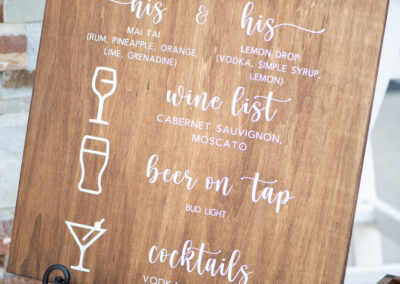 his & his
MAI TAI
(RUM, PINEAPPLE, ORANGE,
LIME, GRENADINE)
LEMON DROP
(VODKA, SIMPLE SYRUP,
LEMON)
wine list
CABERNET SAUVIGNON,
MOSCATO
beer on tap
BUD LIGHT
cocktails